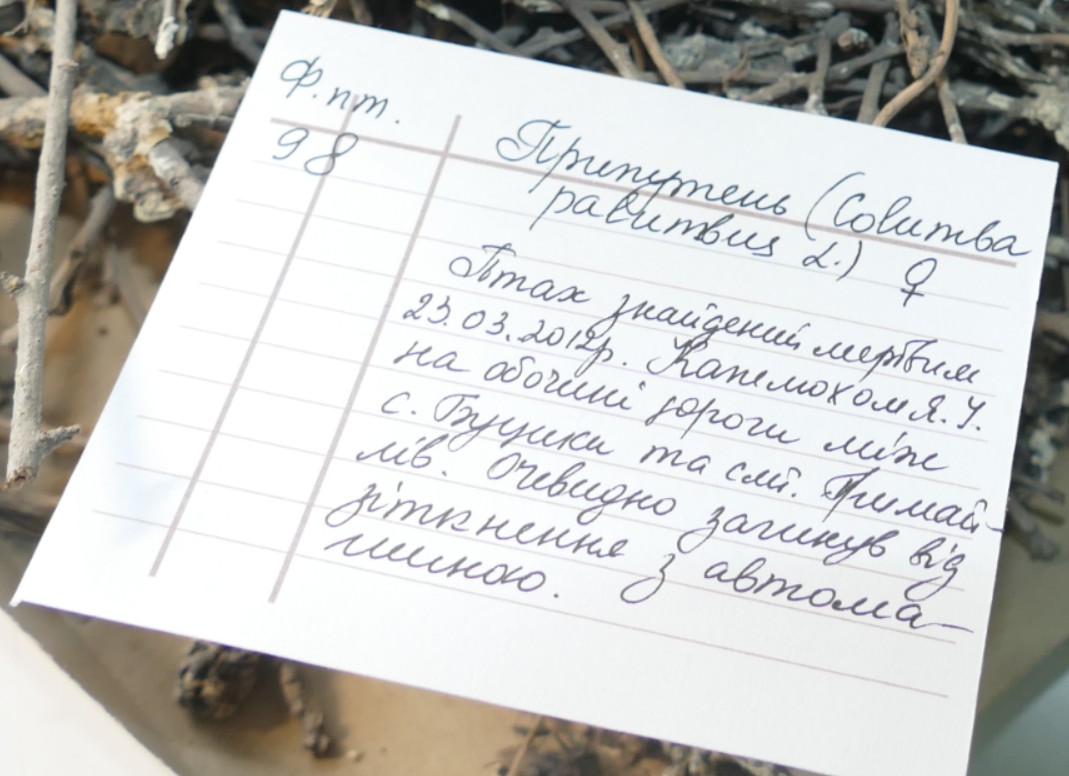 Ф. пт.
98
Припутень (Columba
palumbus L.) ♀
Птах знайдений мертвим
23.03.2012р. Капелюхом Я.І.
на обочині дороги між
с. Буцики та смт. Гримай-
лів. Очевидно загинув від
зіткнення з автома-
шиною.